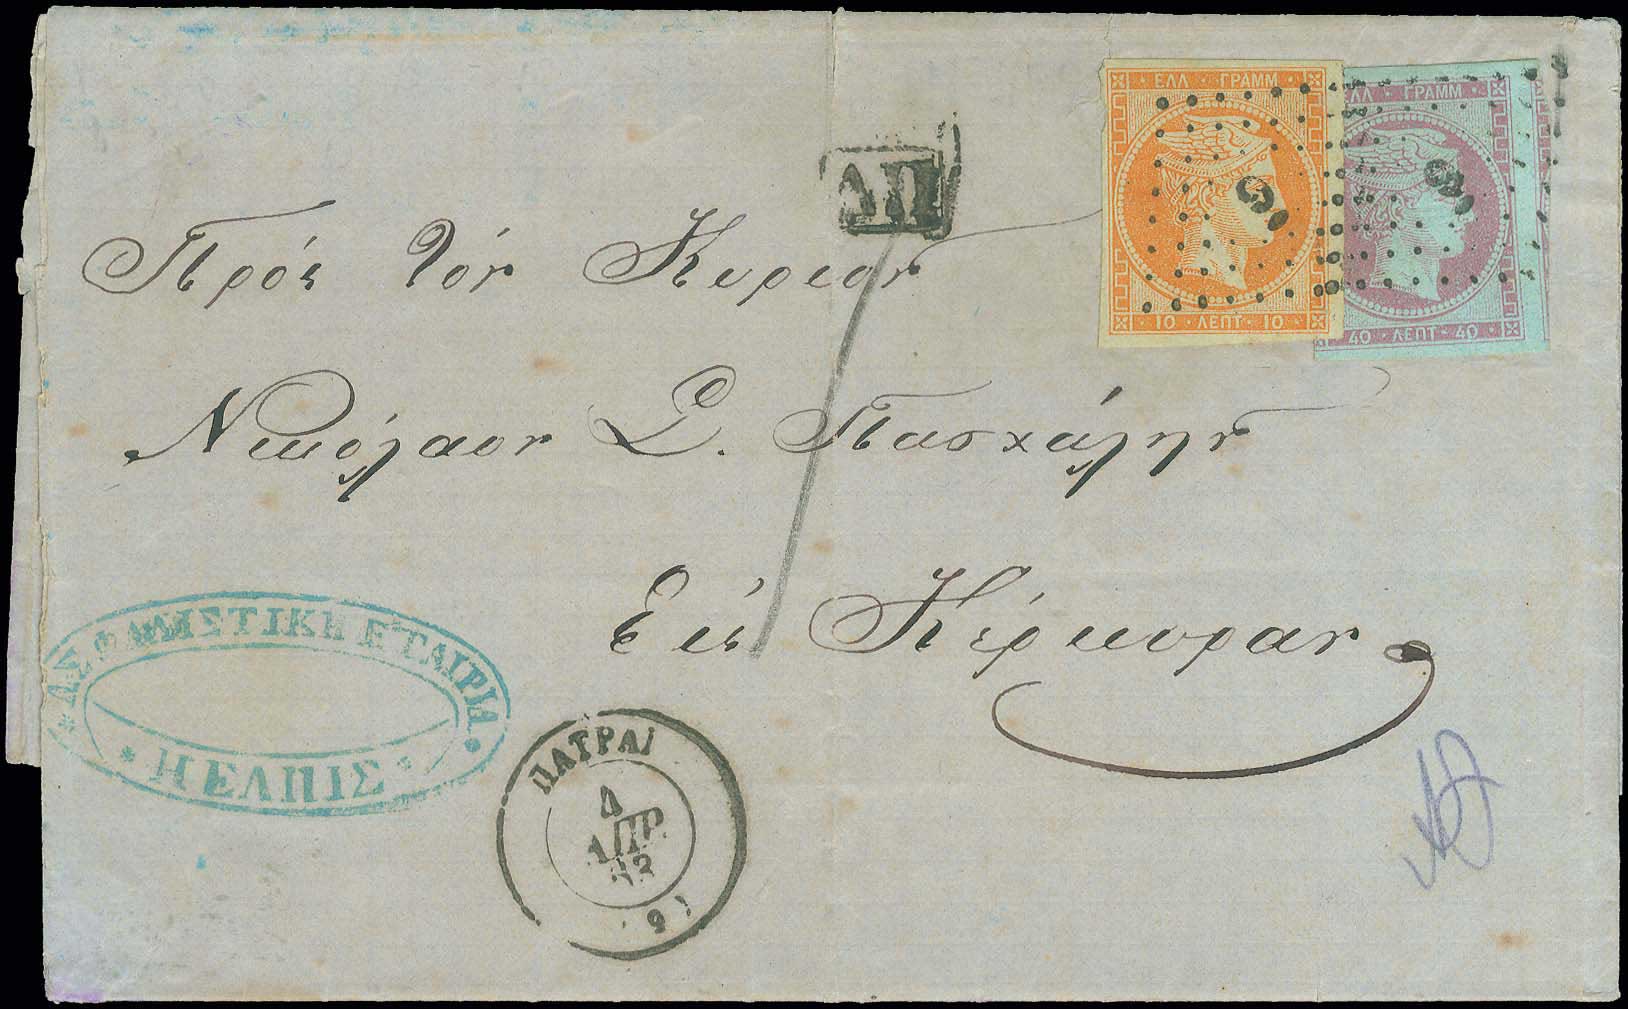 ΕΛΛ · ΓΡΑΜΜ
10 · ΛΕΠΤ · 10
ΕΛΛ · ΓΡΑΜΜ
40 · ΛΕΠΤ · 40
9
9
ΔΠ
Πρός τόν Κυριον
Νικόλαον Σ. Πασχάλην
Εις Κέρκυραν
ΑΣΦΑΛΙΣΤΙΚΗ ΕΤΑΙΡΙΑ
Η ΕΛΠΙΣ
ΠΑΤΡΑΙ
4
ΑΠΡ
63
9